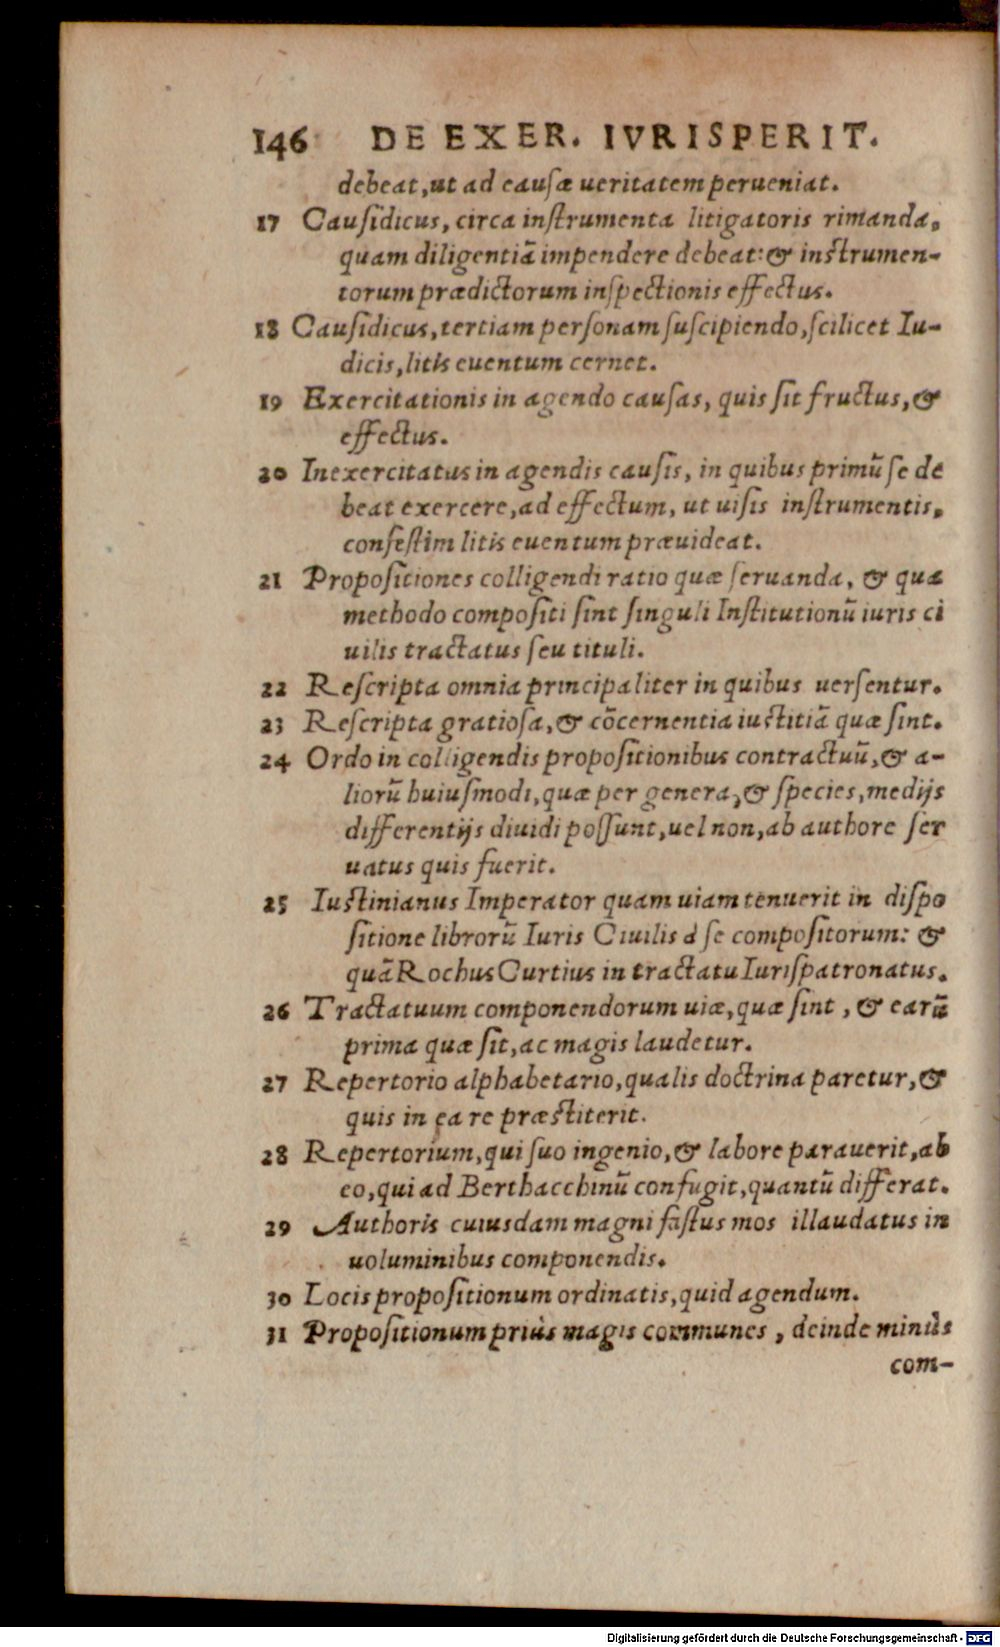 146 DE EXER. IVRISPERIT.
debeat, ut ad causæ ueritatem perueniat.
17 Causidicus, circa instrumenta litigatoris rimanda,
quam diligentiā impendere debeat: & instrumen-
torum prædictorum inspectionis effectus.
18 Causidicus, tertiam personam suscipiendo, scilicet Iu-
dicis, litis euentum cernet.
19 Exercitationis in agendo causas, quis sit fructus, &
effectus.
20 Inexercitatus in agendis causis, in quibus primū se de
beat exercere, ad effectum, ut uisis instrumentis,
confestim litis euentum præuideat.
21 Propositiones colligendi ratio quæ seruanda, & qua
methodo compositi sint singuli Institutionū iuris ci
uilis tractatus seu tituli.
22 Rescripta omnia principaliter in quibus uersentur.
23 Rescripta gratiosa, & cōcernentia iustitiā quæ sint.
24 Ordo in colligendis propositionibus contractuū, & a-
liorū huiusmodi, quæ per genera, & species, medijs
differentijs diuidi possunt, uel non, ab authore ser
uatus quis fuerit.
25 Iustinianus Imperator quam uiam tenuerit in dispo
sitione librorū Iuris Ciuilis à se compositorum: &
quā Rochus Curtius in tractatu Iurispatronatus.
26 Tractatuum componendorum uiæ, quæ sint, & earū
prima quæ sit, ac magis laudetur.
27 Repertorio alphabetario, qualis doctrina paretur, &
quis in ea re præstiterit.
28 Repertorium, qui suo ingenio, & labore parauerit, ab
eo, qui ad Berthacchinū confugit, quantū differat.
29 Authoris cuiusdam magni fastus mos illaudatus in
uoluminibus componendis.
30 Locis propositionum ordinatis, quid agendum.
31 Propositionum priùs magis communes, deinde minùs
com-
Digitalisierung gefördert durch die Deutsche Forschungsgemeinschaft - DFG